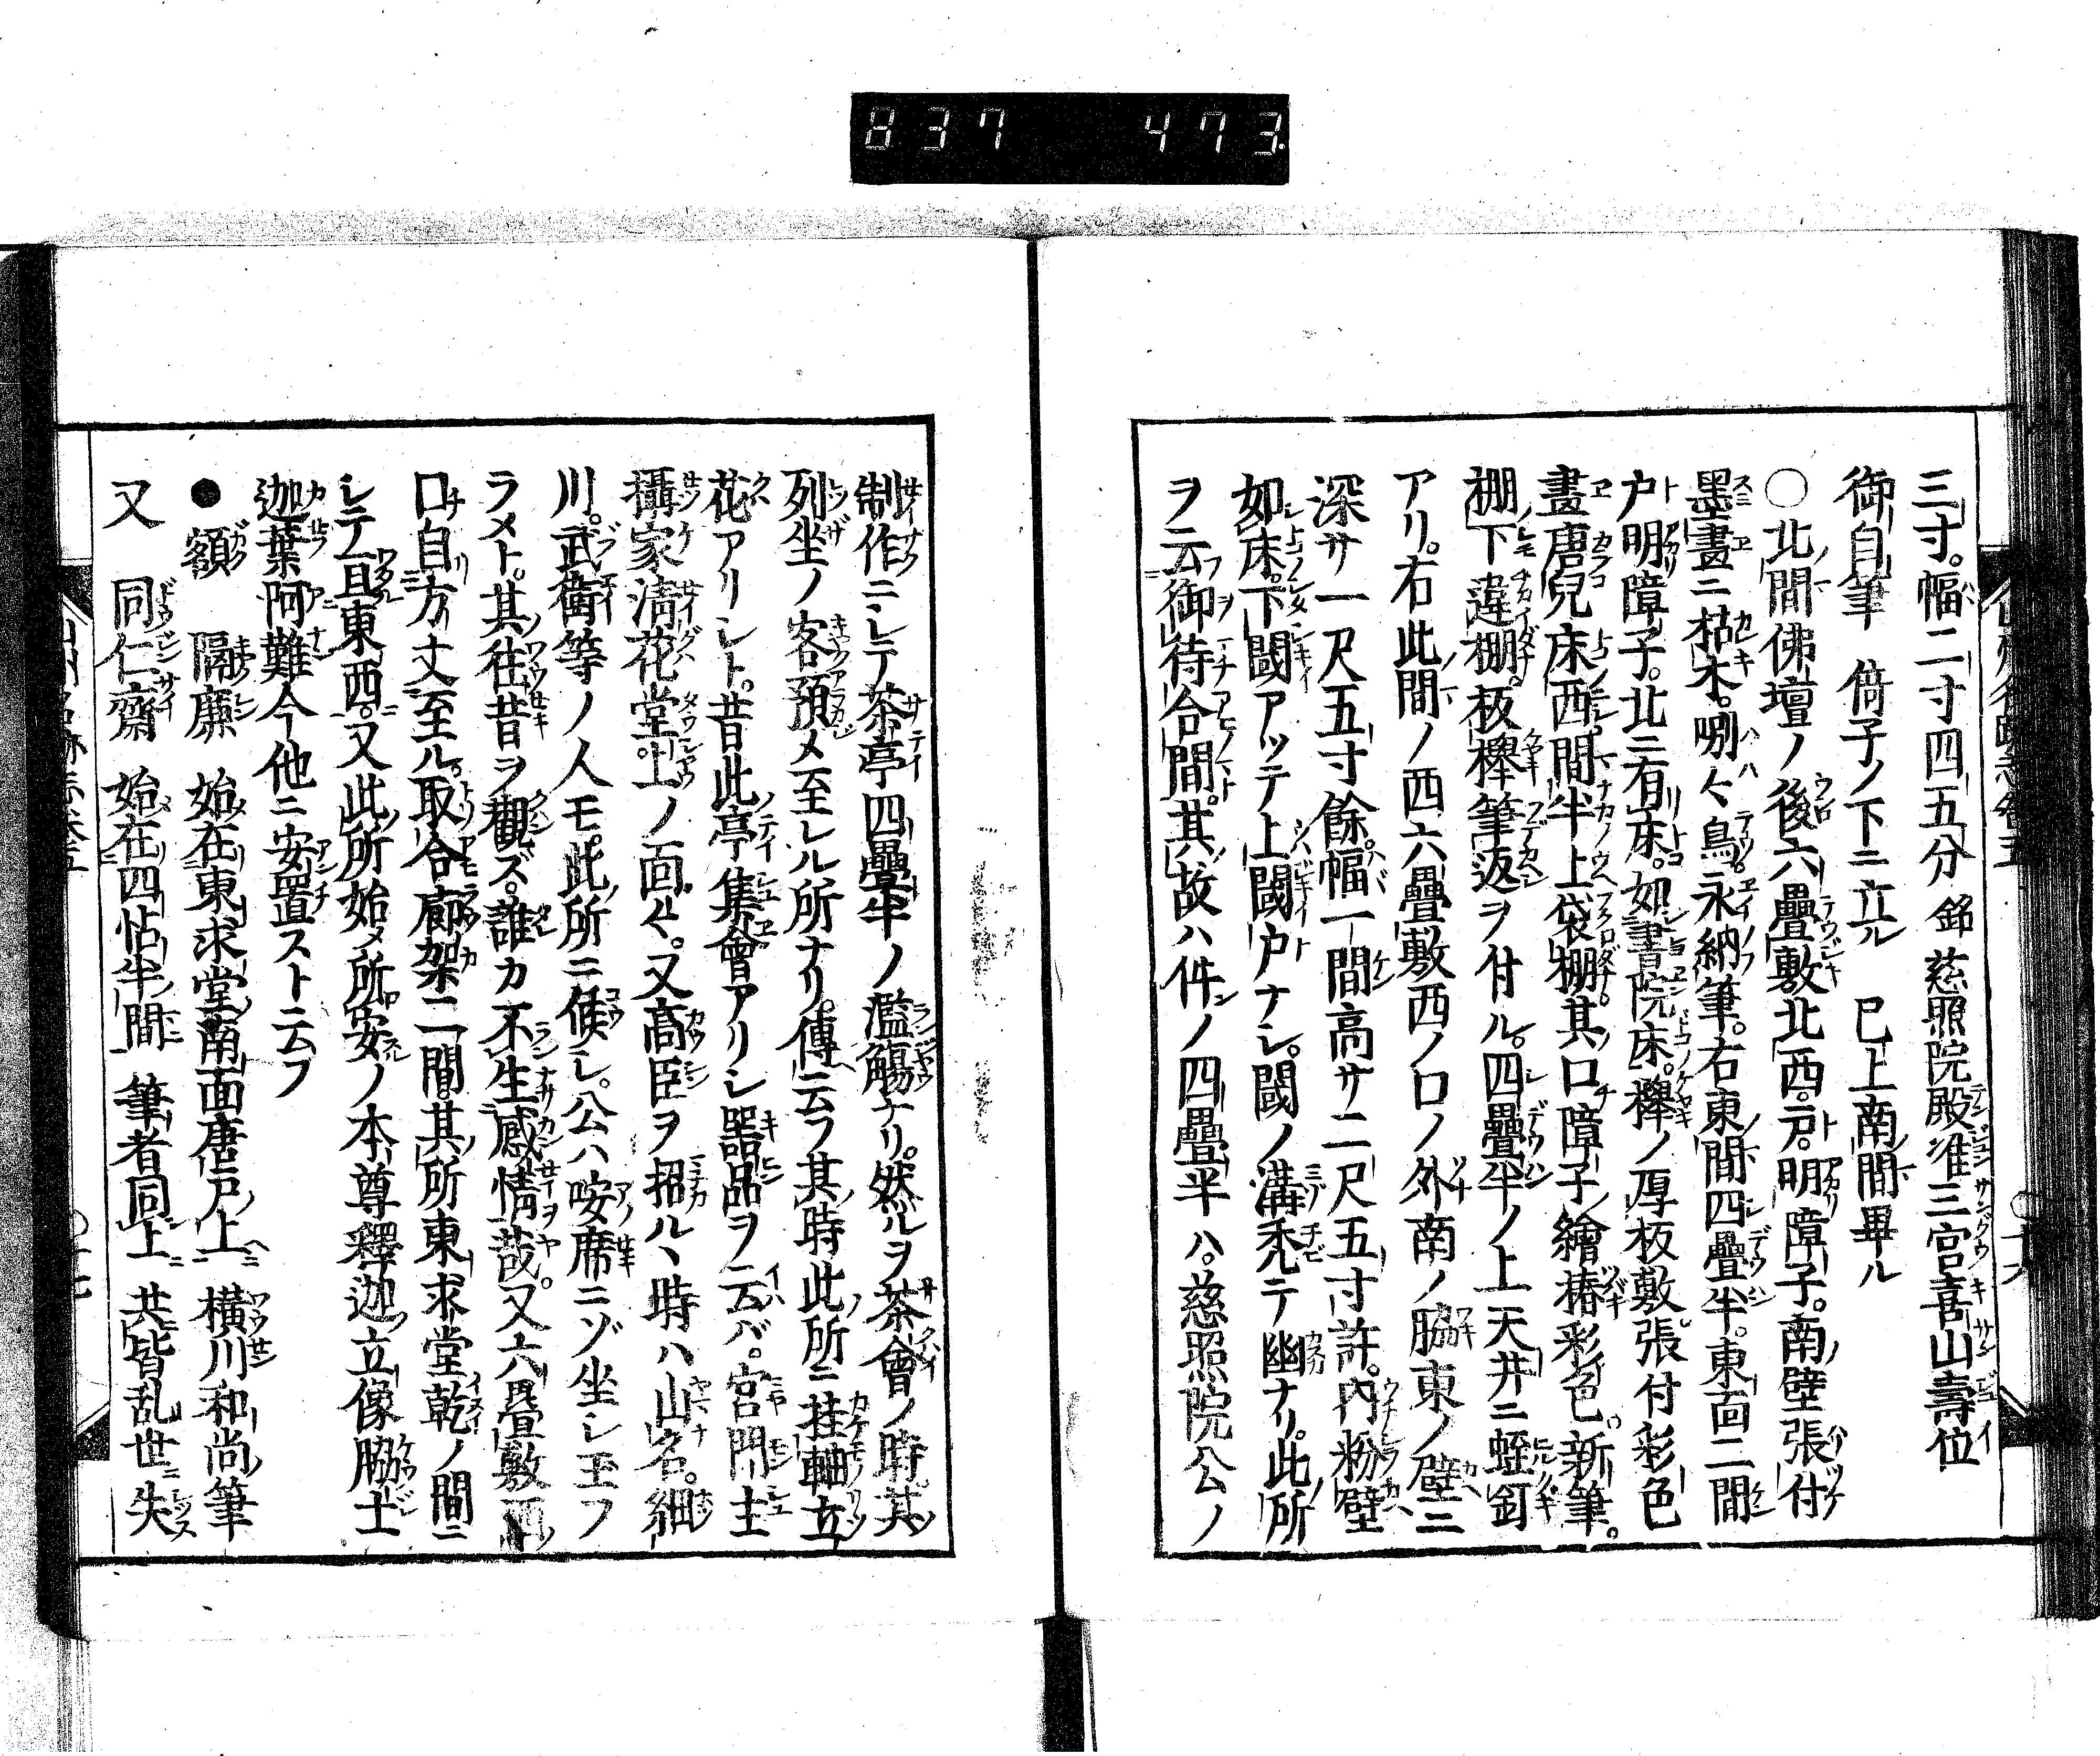 837 473
三寸。幅二寸四五分 銘 慈照院殿准三宮喜山壽位
御自筆 倚子ノ下ニ立ル 已上南間畢ル
○北間佛壇ノ後六疊敷北西。戸。明障子。南壁張付
墨畫ニ枯木。唎々鳥。永納筆。右東間四疊半。東面二間
戸明障子。北ニ有床。如書院床。欅ノ厚板敷。張付彩色
畫唐兒床西間半上袋棚。其口障子繪椿彩色。新筆。
棚下違棚。板欅筆返ヲ付ル。四疊半ノ上天井ニ蛭釘
アリ。右此間ノ西六疊敷西ノ口ノ外南ノ脇東ノ壁ニ
深サ一尺五寸餘。幅一間高サ二尺五寸許。内粉壁
如床。下閾アッテ上閾戸ナシ。閾ノ溝禿テ幽ナリ。此所
ヲ云御待合間。其故ハ件ノ四疊半ハ。慈照院公ノ
制作ニレテ茶亭四疊半ノ濫觴ナリ。然ルヲ茶會ノ時。其
列坐ノ客預メ至レル所ナリ。傳云フ其時此所ニ挂軸立
花アリシト。昔此亭集會アリシ器品ヲ云バ。宮門主
攝家淸花堂上ノ面々。又髙臣ヲ招ルヽ時ハ山名。細
川。武衞等ノ人モ。此所ニ候シ。公ハ唵席ニゾ坐シ玉フ
ラメト。其徃昔ヲ觀ズ。誰カ不生感情哉。又六疊敷西ノ
口自方丈至ル。取合廊架二間。其所東求堂乾ノ間ニ
レテ亘東西。又此所始メ所安ノ本尊釋迦立像脇士
迦葉阿難今他ニ安置スト云フ
●額 隔簾 始在東求堂南面唐戸上 横川和尚筆
又 同仁齋 始在四帖半間 筆者同上 共皆乱世失